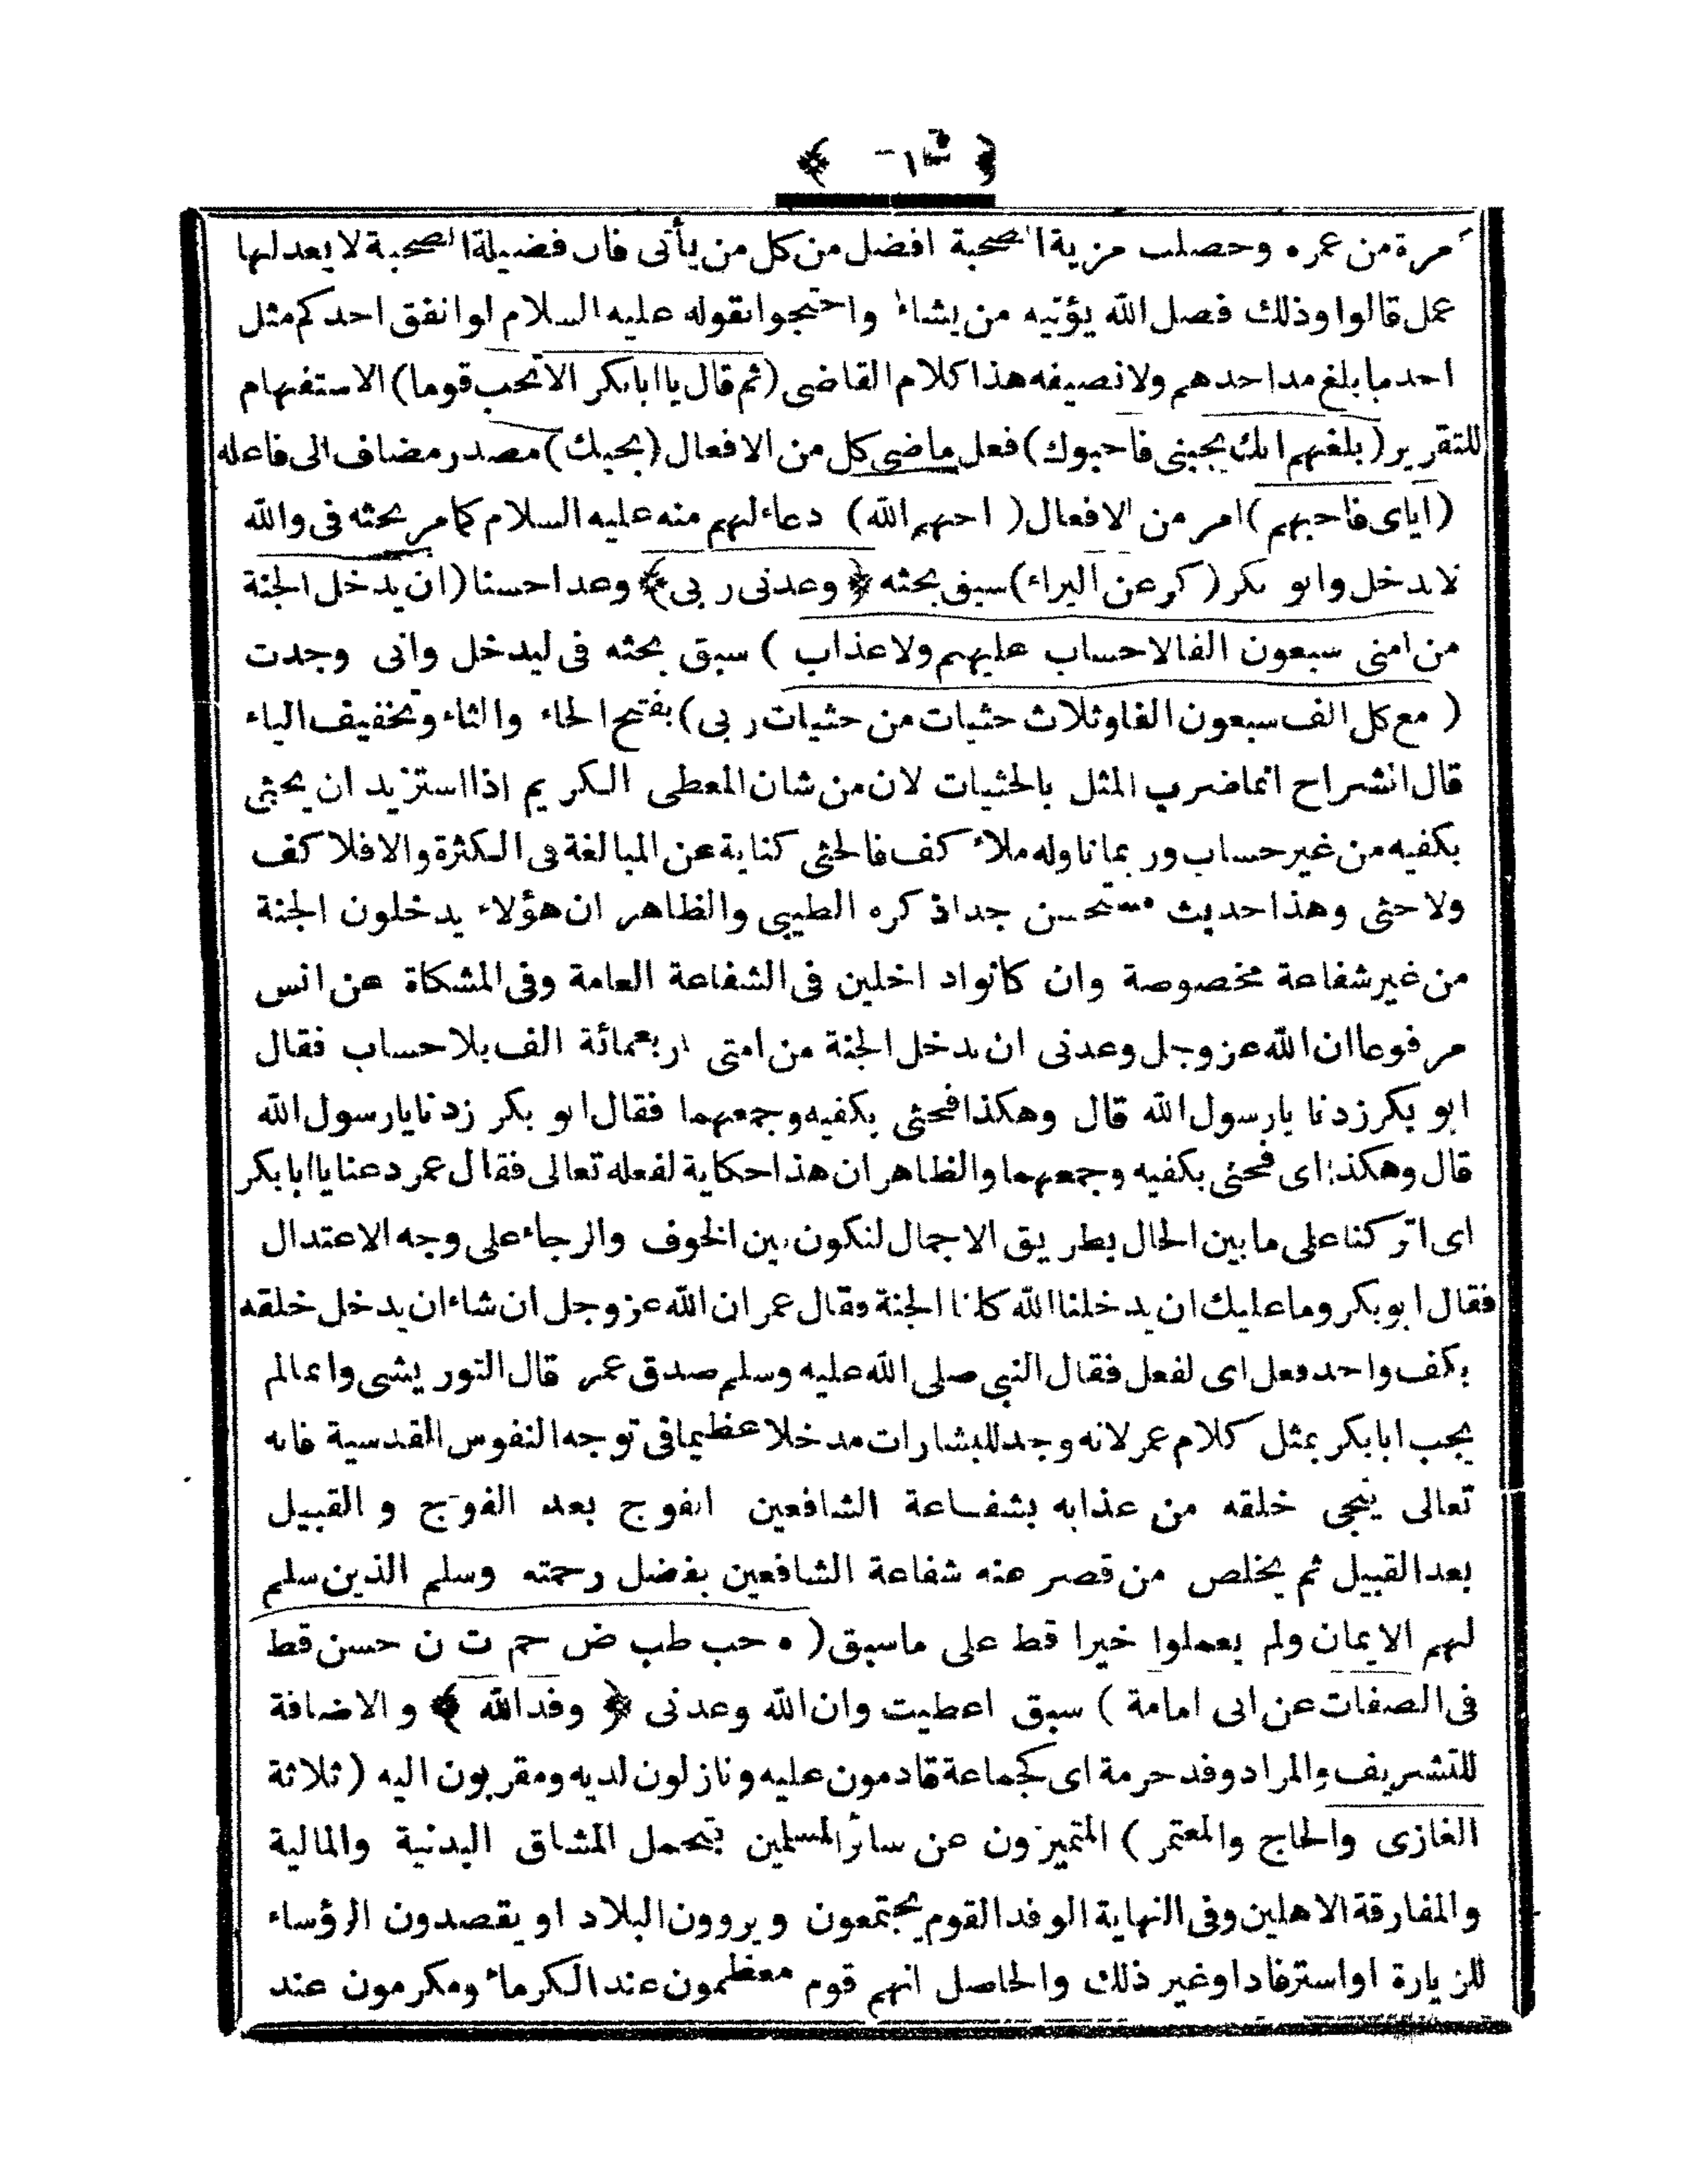 مرة من عمره وحصلت مزية الصحبة افضل من كل من يأتى فان فضيلة الصحبة لا يعدلها
عمل قالوا وذلك فضل الله يؤتيه من يشاء واحتجوا بقوله عليه السلام لو انفق احدكم مثل
احد ما بلغ مد احدهم ولا نصيفه هذا كلام القاضى (ثم قال يا ابا بكر الا تحب قوما) الاستفهام
للتقرير (بلغهم انك تحبنى فاحبوك) فعل ماضى كل من الافعال (بحبك) مصدر مضاف الى فاعله
(اياى فاحبهم) امر من الافعال (احبهم الله) دعاء لهم منه عليه السلام كما مر بحثه فى والله
لا يدخل وابو بكر (كر عن البراء) سبق بحثه ﴿ وعدنى ربى ﴾ وعدا حسنا (ان يدخل الجنة
من امتى سبعون الفا لا حساب عليهم ولا عذاب) سبق بحثه فى ليدخل وانى وجدت
(مع كل الف سبعون الفا وثلاث حثيات من حثيات ربى) بفتح الحاء والثاء وتخفيف الياء
قال الشراح انما ضرب المثل بالحثيات لان من شان المعطى الكريم اذا استزيد ان يحثى
بكفيه من غير حساب وربما ناوله ملاء كف فالحثى كناية عن المبالغة فى الكثرة والا فلا كف
ولا حثى وهذا حديث مستحسن جدا ذكره الطيبى والظاهر ان هؤلاء يدخلون الجنة
من غير شفاعة مخصوصة وان كانوا داخلين فى الشفاعة العامة وفى المشكاة عن انس
مرفوعا ان الله عز وجل وعدنى ان يدخل الجنة من امتى اربعمائة الف بلا حساب فقال
ابو بكر زدنا يا رسول الله قال وهكذا فحثى بكفيه وجمعهما فقال ابو بكر زدنا يا رسول الله
قال وهكذا اى فحثى بكفيه وجمعهما والظاهر ان هذا حكاية لفعله تعالى فقال عمر دعنا يا ابا بكر
اى اتركنا على ما بين الحال بطريق الاجمال لنكون بين الخوف والرجاء على وجه الاعتدال
فقال ابو بكر وما عليك ان يدخلنا الله كلنا الجنة فقال عمر ان الله عز وجل ان شاء ان يدخل خلقه
بكف واحد فعل اى لفعل فقال النبى صلى الله عليه وسلم صدق عمر قال التوربشى وانما لم
يجب ابا بكر بمثل كلام عمر لانه وجد للبشارات مدخلا عظيما فى توجه النفوس القدسية فانه
تعالى ينجى خلقه من عذابه بشفاعة الشافعين الفوج بعد الفوج و القبيل
بعد القبيل ثم يخلص من قصر عنه شفاعة الشافعين بفضل رحمته وسلم الذين سلم
لهم الايمان ولم يعملوا خيرا قط على ما سبق (ه حب طب ض حم ت ن حسن قط
فى الصفات عن ابى امامة) سبق اعطيت وان الله وعدنى ﴿ وفد الله ﴾ و الاضافة
للتشريف والمراد وفد حرمة اى كجماعة قادمون عليه ونازلون لديه ومقربون اليه (ثلاثة
الغازى والحاج والمعتمر) المتميزون عن سائر المسلمين بتحمل المشاق البدنية والمالية
والمفارقة الاهلين وفى النهاية الوفد القوم يجتمعون ويروون البلاد او يقصدون الرؤساء
للزيارة او استرفادا وغير ذلك والحاصل انهم قوم معظمون عند الكرماء ومكرمون عند